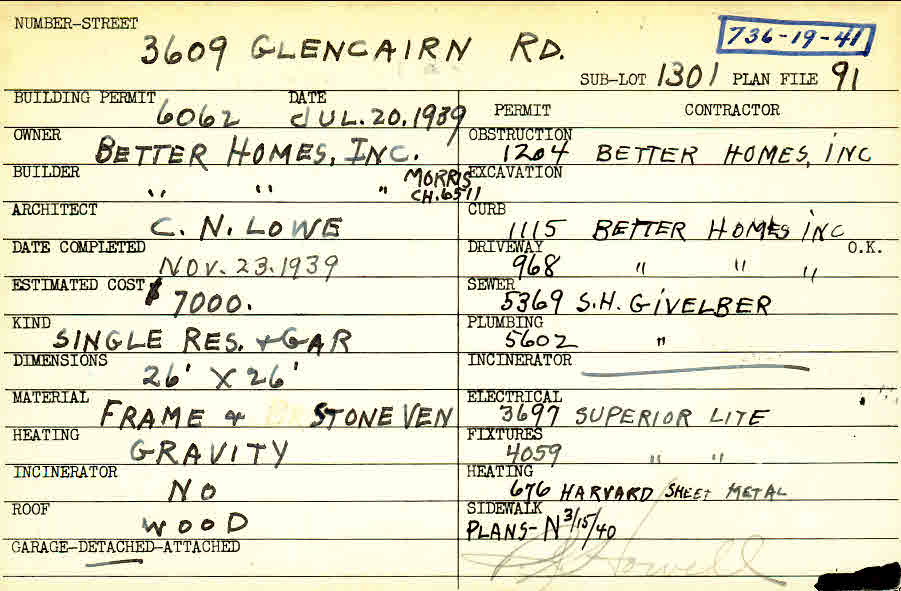 NUMBER-STREET
3609 GLENCAIRN RD.
736-19-41
SUB-LOT 1301 PLAN FILE 91
BUILDING PERMIT 6062 DATE JUL. 20, 1939
OWNER BETTER HOMES, INC.
BUILDER " " " MORRIS CH. 6511
ARCHITECT C. N. LOWE
DATE COMPLETED NOV. 23. 1939
ESTIMATED COST $7000.
KIND SINGLE RES. + GAR
DIMENSIONS 26' X 26'
MATERIAL FRAME + STONE VEN
HEATING GRAVITY
INCINERATOR NO
ROOF WOOD
GARAGE-DETACHED-ATTACHED
PERMIT CONTRACTOR
OBSTRUCTION 1204 BETTER HOMES, INC
EXCAVATION
CURB 1115 BETTER HOMES INC
DRIVEWAY 968 " " " O.K.
SEWER 5369 S.H. GIVELBER
PLUMBING 5602 "
INCINERATOR
ELECTRICAL 3697 SUPERIOR LITE
FIXTURES 4059 " "
HEATING 676 HARVARD SHEET METAL
SIDEWALK
PLANS-N 3/15/40